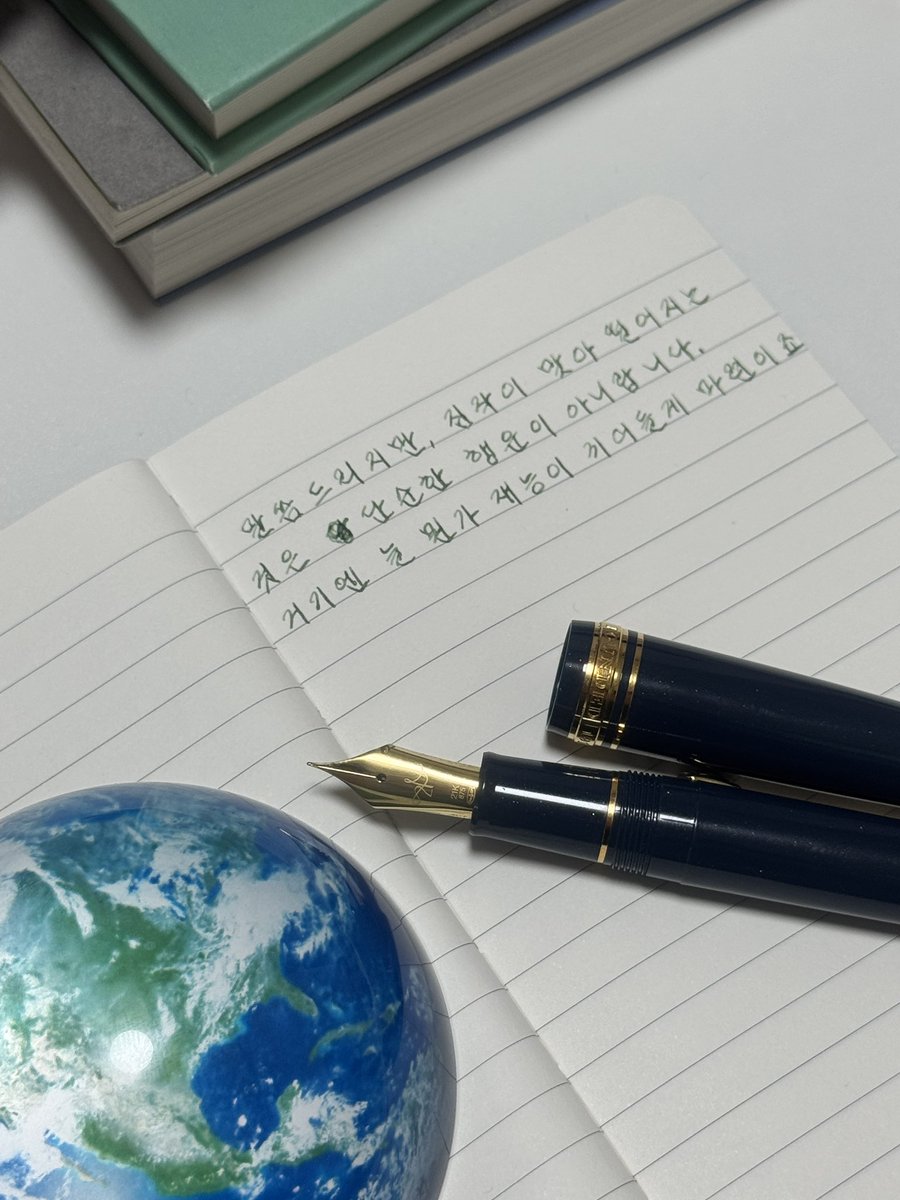 말씀 드리지만, 짐작이 맞아 떨어지는
것은 단순한 행운이 아니랍니다.
거기엔 늘 뭔가 재능이 끼어들게 마련이죠
21K